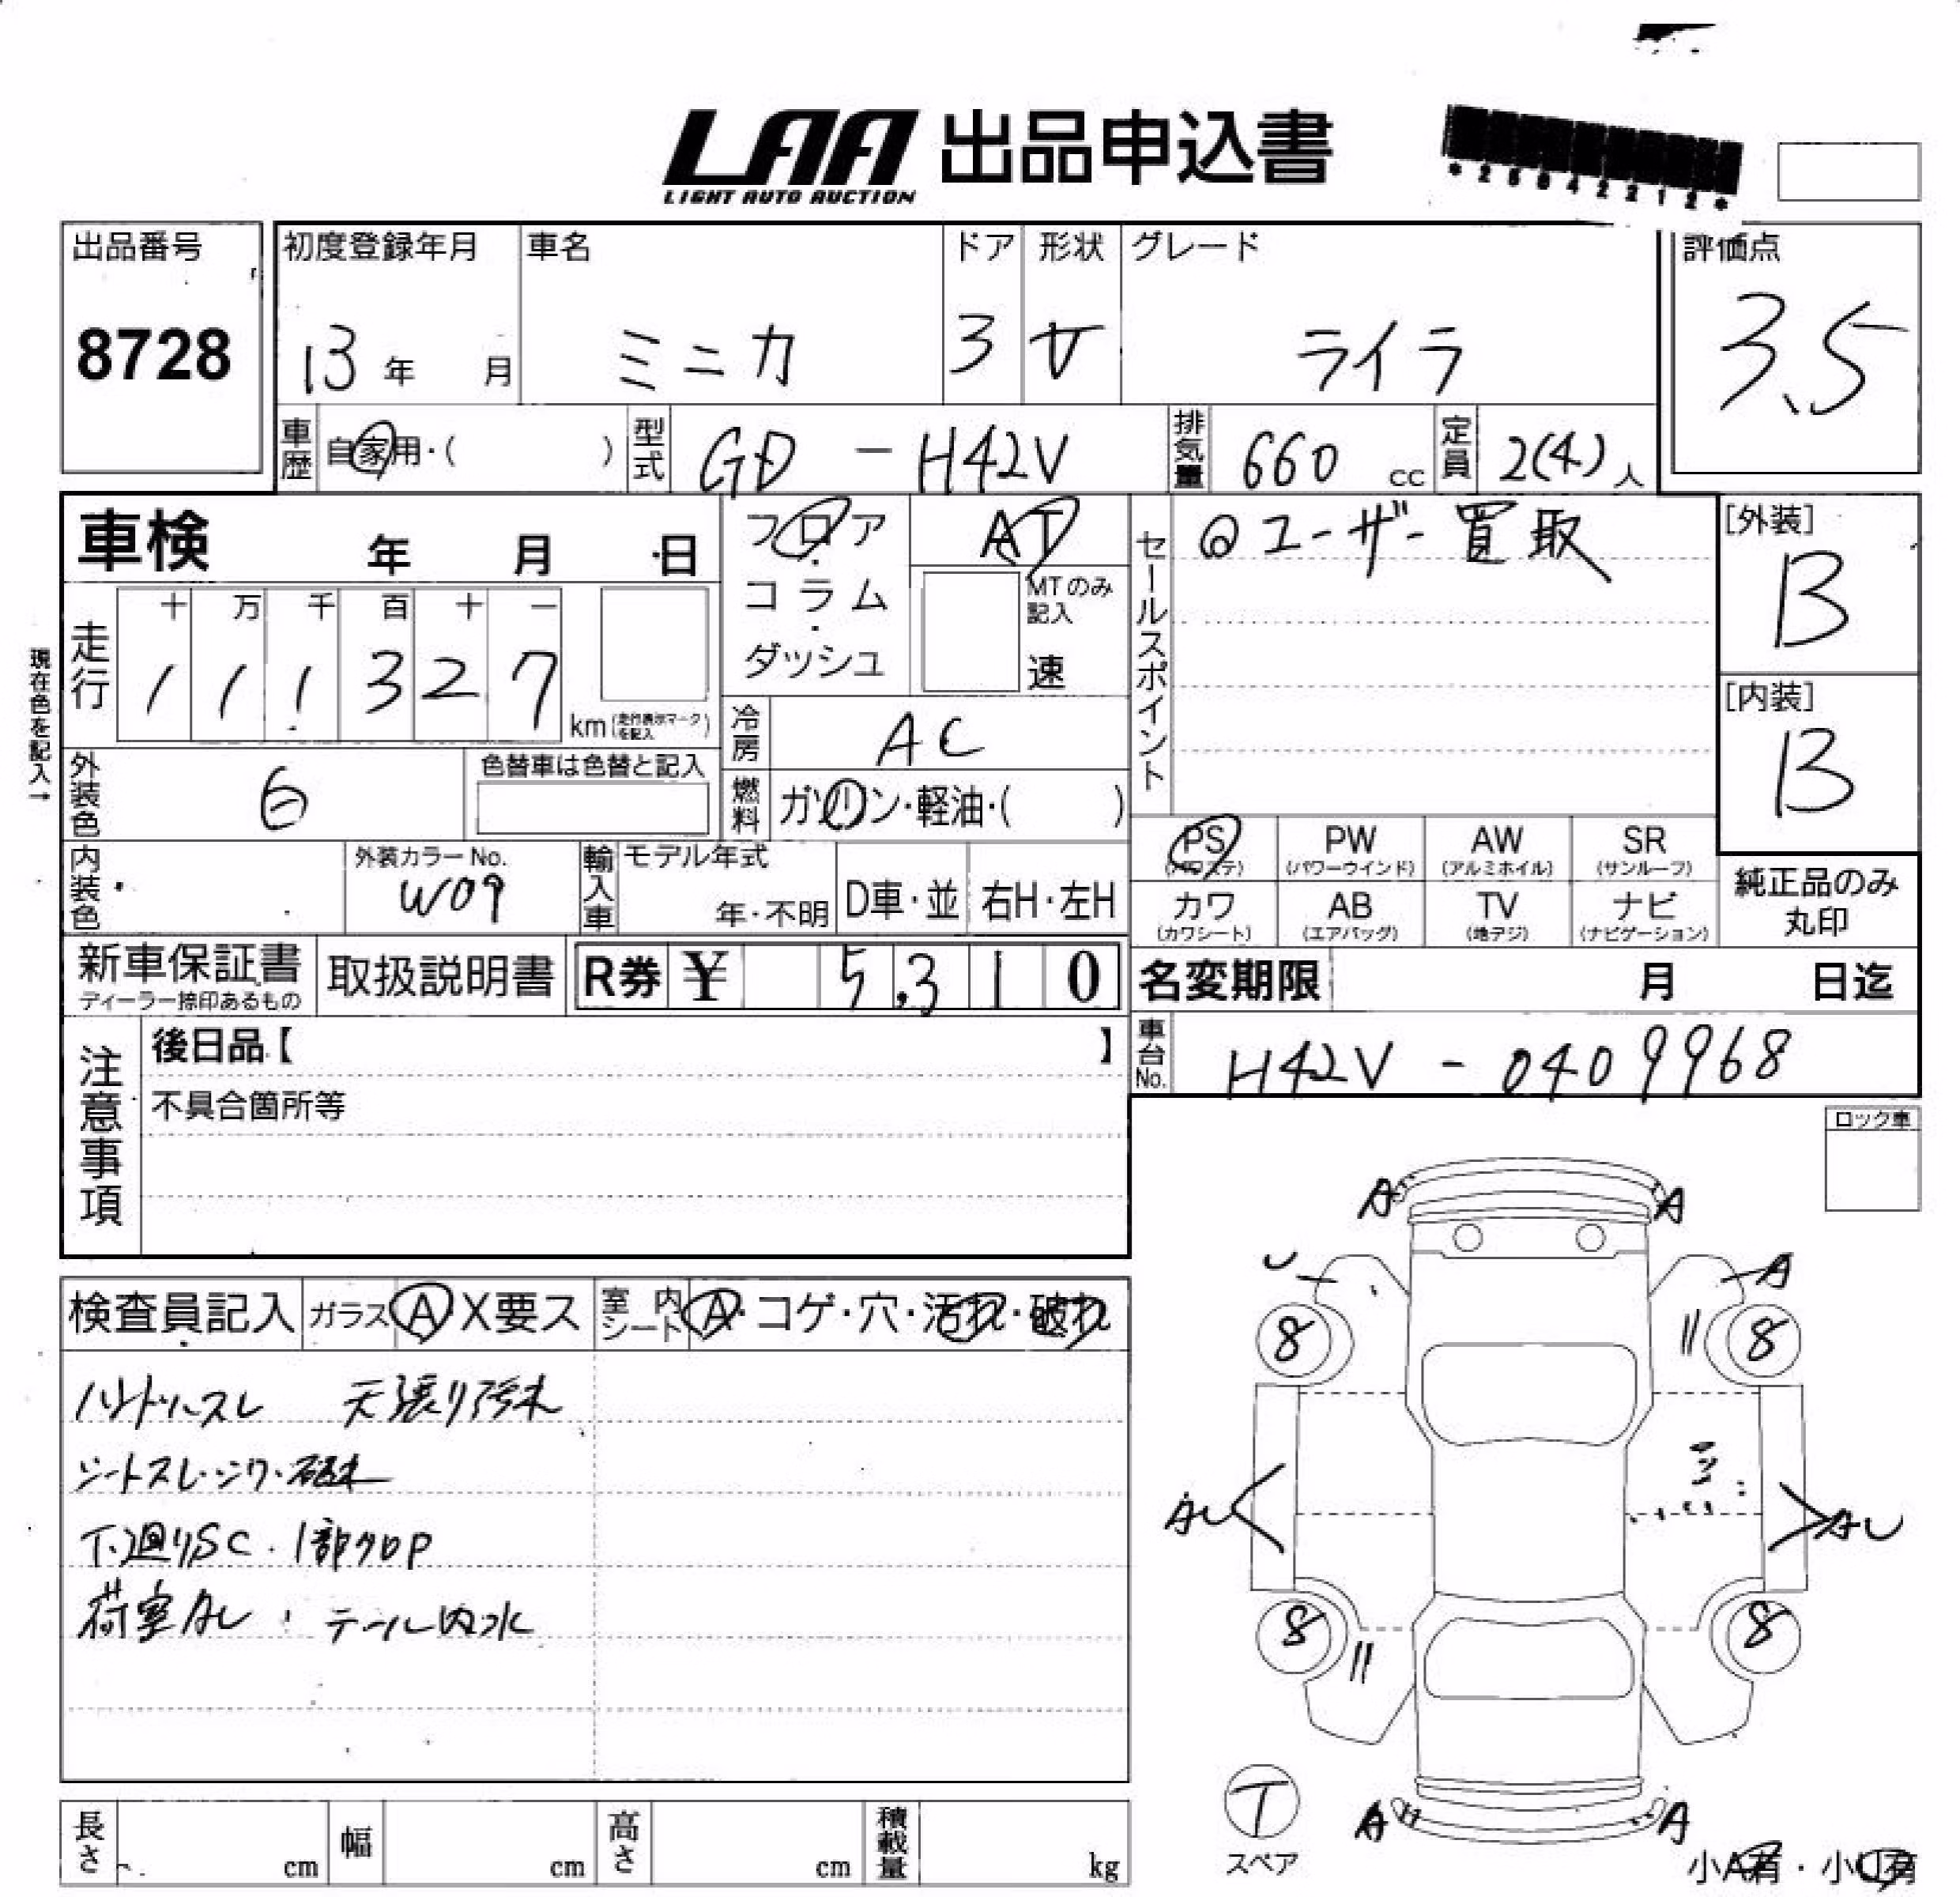 LAA 出品申込書
LIGHT AUTO AUCTION
*25042212*
出品番号 初度登録年月 車名 ドア 形状 グレード 評価点
8728 13年 月 ミニカ 3 V ライラ 3.5
車歴 自家用・( ) 型式 GD - H42V 排気量 660 cc 定員 2(4)人
車検 年 月 日
フロア・コラム・ダッシュ AT
MTのみ記入 速
セールスポイント ◎ユーザー買取
[外装] B
[内装] B
現在色を記入→
走行 十 万 千 百 十 一
1 1 1 3 2 7 km(走行表示マークを記入)
冷房 AC
外装色 白 色替車は色替と記入
燃料 ガソリン・軽油・( )
PS (パワステ) PW (パワーウインド) AW (アルミホイル) SR (サンルーフ)
カワ (カワシート) AB (エアバッグ) TV (地デジ) ナビ (ナビゲーション)
純正品のみ丸印
内装色 外装カラーNo. W09 輸入車 モデル年式 年・不明 D車・並 右H・左H
新車保証書 ディーラー捺印あるもの 取扱説明書 R券 ¥ 5,310
名変期限 月 日迄
注意事項 後日品【 】
車台No. H42V - 0409968
不具合箇所等
ロック車
A A
A
8 8
AU AU
8 8
A A
検査員記入 ガラス A・X要ス 室内シート A・コゲ・穴・汚れ・破れ
ハンドルスレ 天張り汚れ
シートスレ・シワ・破れ
下廻りSC・1部クロP
荷室AU テール内水
T
スペア
小A有・小U有
長さ cm 幅 cm 高さ cm 積載量 kg